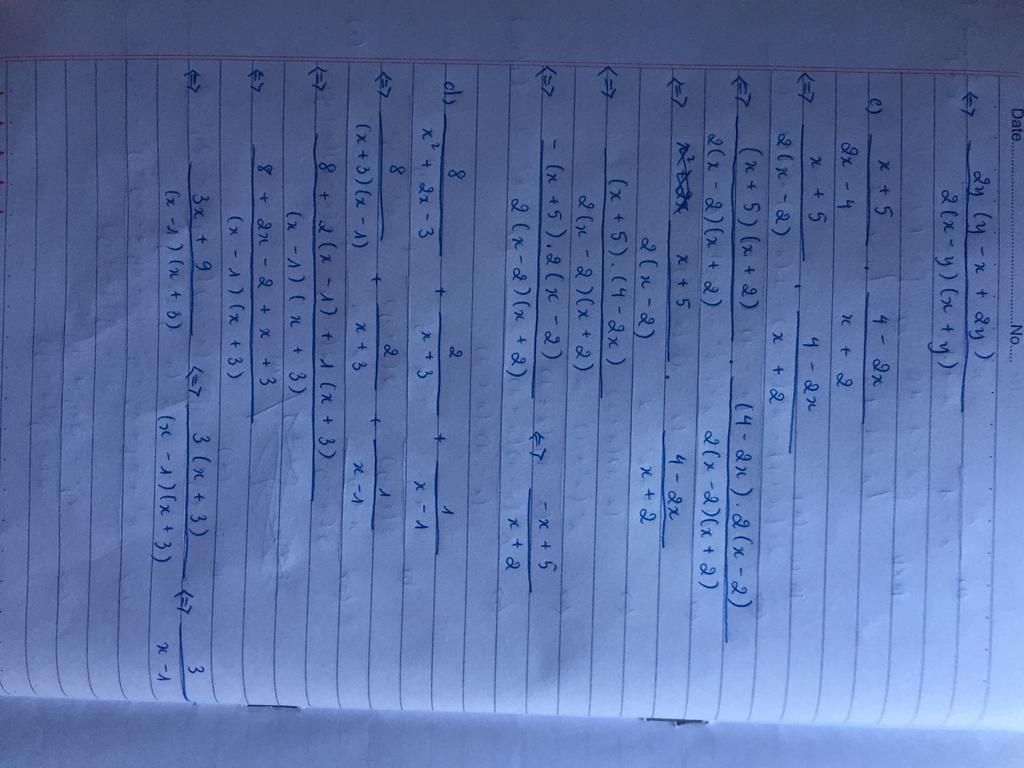 Date........ No......
<=> 2y(y - x + 2y) / 2(x - y)(x + y)
c) x + 5 / 2x - 4 . 4 - 2x / x + 2
<=> x + 5 / 2(x - 2) . 4 - 2x / x + 2
<=> (x + 5)(x + 2) / 2(x - 2)(x + 2) . (4 - 2x).2(x - 2) / 2(x - 2)(x + 2)
<=> x + 5 / 2(x - 2) . 4 - 2x / x + 2
<=> (x + 5).(4 - 2x) / 2(x - 2)(x + 2)
<=> -(x + 5).2(x - 2) / 2(x - 2)(x + 2) <=> -x + 5 / x + 2
d) 8 / x² + 2x - 3 + 2 / x + 3 + 1 / x - 1
<=> 8 / (x + 3)(x - 1) + 2 / x + 3 + 1 / x - 1
<=> 8 + 2(x - 1) + 1(x + 3) / (x - 1)(x + 3)
<=> 8 + 2x - 2 + x + 3 / (x - 1)(x + 3)
<=> 3x + 9 / (x - 1)(x + 3) <=> 3(x + 3) / (x - 1)(x + 3) <=> 3 / x - 1